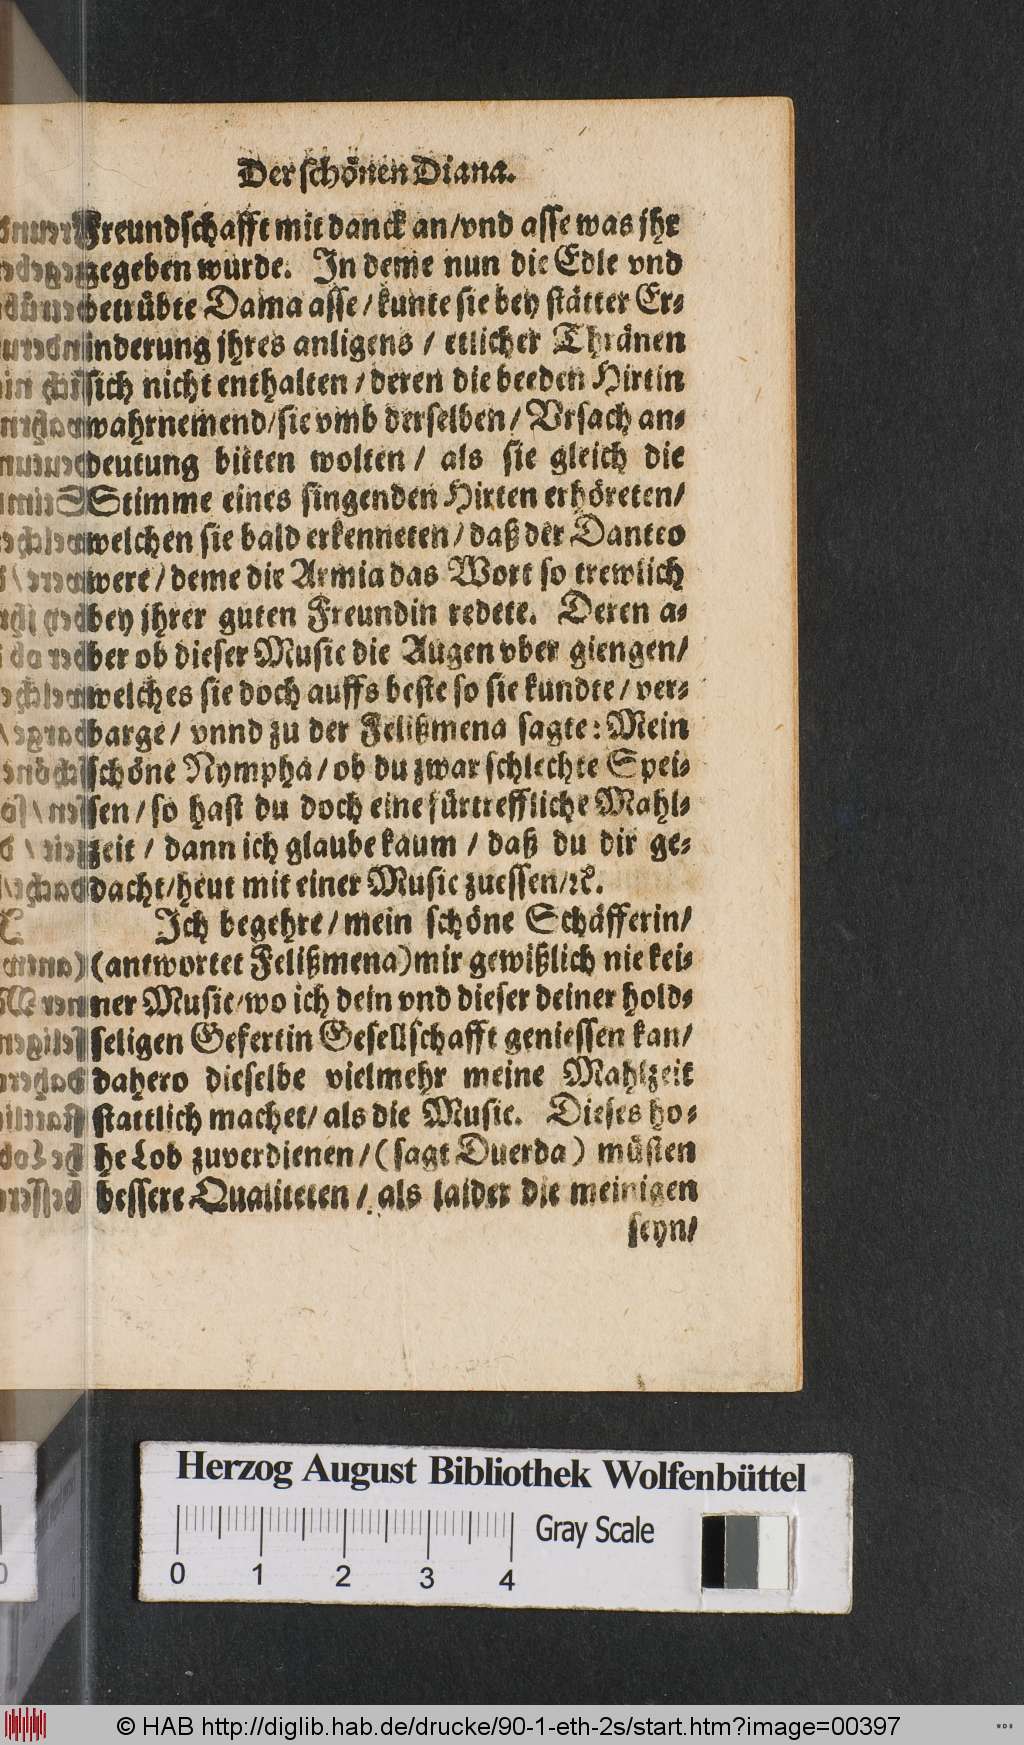 Der schönen Diana.
Freundschafft mit danck an/vnd asse was jhr
gegeben wurde. In deme nun die Edle vnd
betrübte Dama asse/kunte sie bey stätter Er-
inderung jhres anligens / etlicher Thränen
sich nicht enthalten/deren die beeden Hirtin
wahrnemend/sie vmb derselben/ Vrsach an-
deutung bitten wolten/ als sie gleich die
Stimme eines singenden Hirten erhöreten/
welchen sie bald erkenneten/daß der Danteo
were/deme die Armia das Wort so trewlich
bey jhrer guten Freundin redete. Deren a-
ber ob dieser Music die Augen vber giengen/
welches sie doch auffs beste so sie kundte/ver-
barge/ vnnd zu der Felißmena sagte: Mein
schöne Nympha/ob du zwar schlechte Spei-
sen/so hast du doch eine fürtreffliche Mahl-
zeit / dann ich glaube kaum / daß du dir ge-
dacht/heut mit einer Music zuessen/ꝛc.
Ich begehre/mein schöne Schäfferin/
(antwortet Felißmena)mir gewißlich nie kei-
ner Music/wo ich dein vnd dieser deiner hold-
seligen Gefertin Gesellschafft geniessen kan/
dahero dieselbe vielmehr meine Mahlzeit
stattlich machet/als die Music. Dieses ho-
he Lob zuverdienen/(sagt Duerda) müsten
bessere Qualiteten/als laider die meinigen
seyn/
Herzog August Bibliothek Wolfenbüttel
0 1 2 3 4 Gray Scale
© HAB http://diglib.hab.de/drucke/90-1-eth-2s/start.htm?image=00397